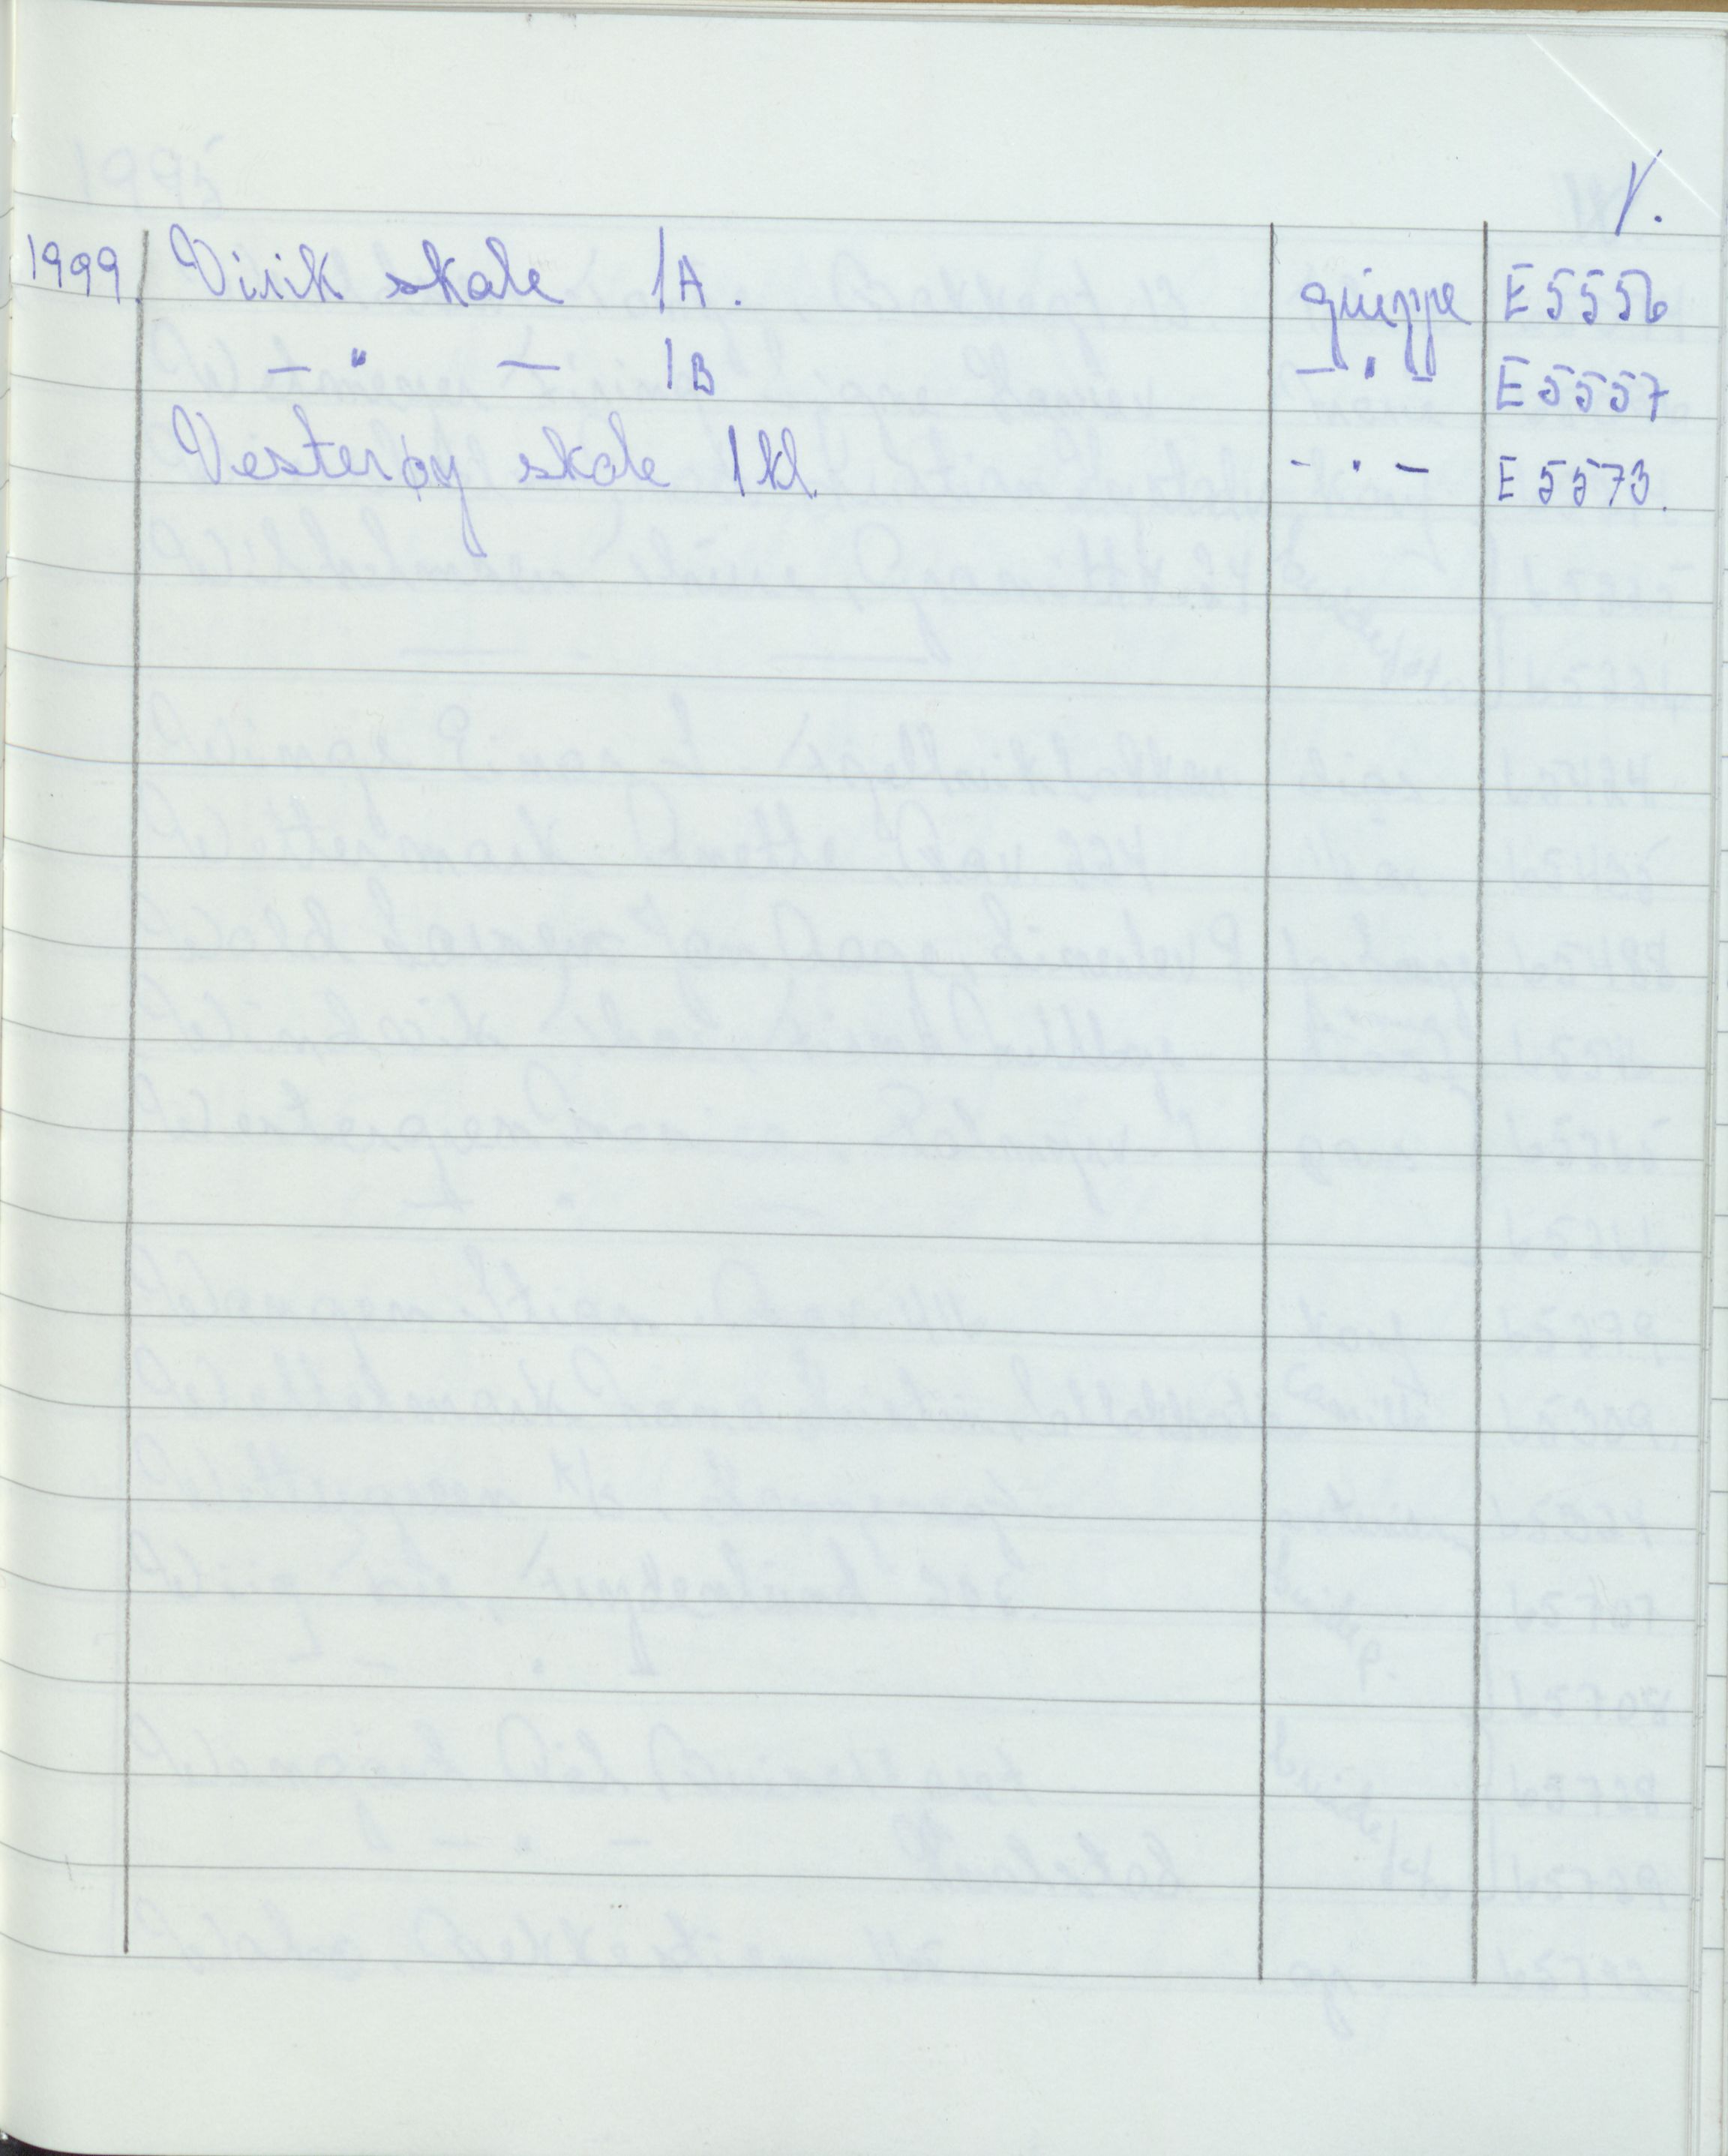 V.
1999. Virik skole 1A. gruppe E5556
— " — 1B — " — E5557
Vesterøy skole 1 kl. — " — E5573.